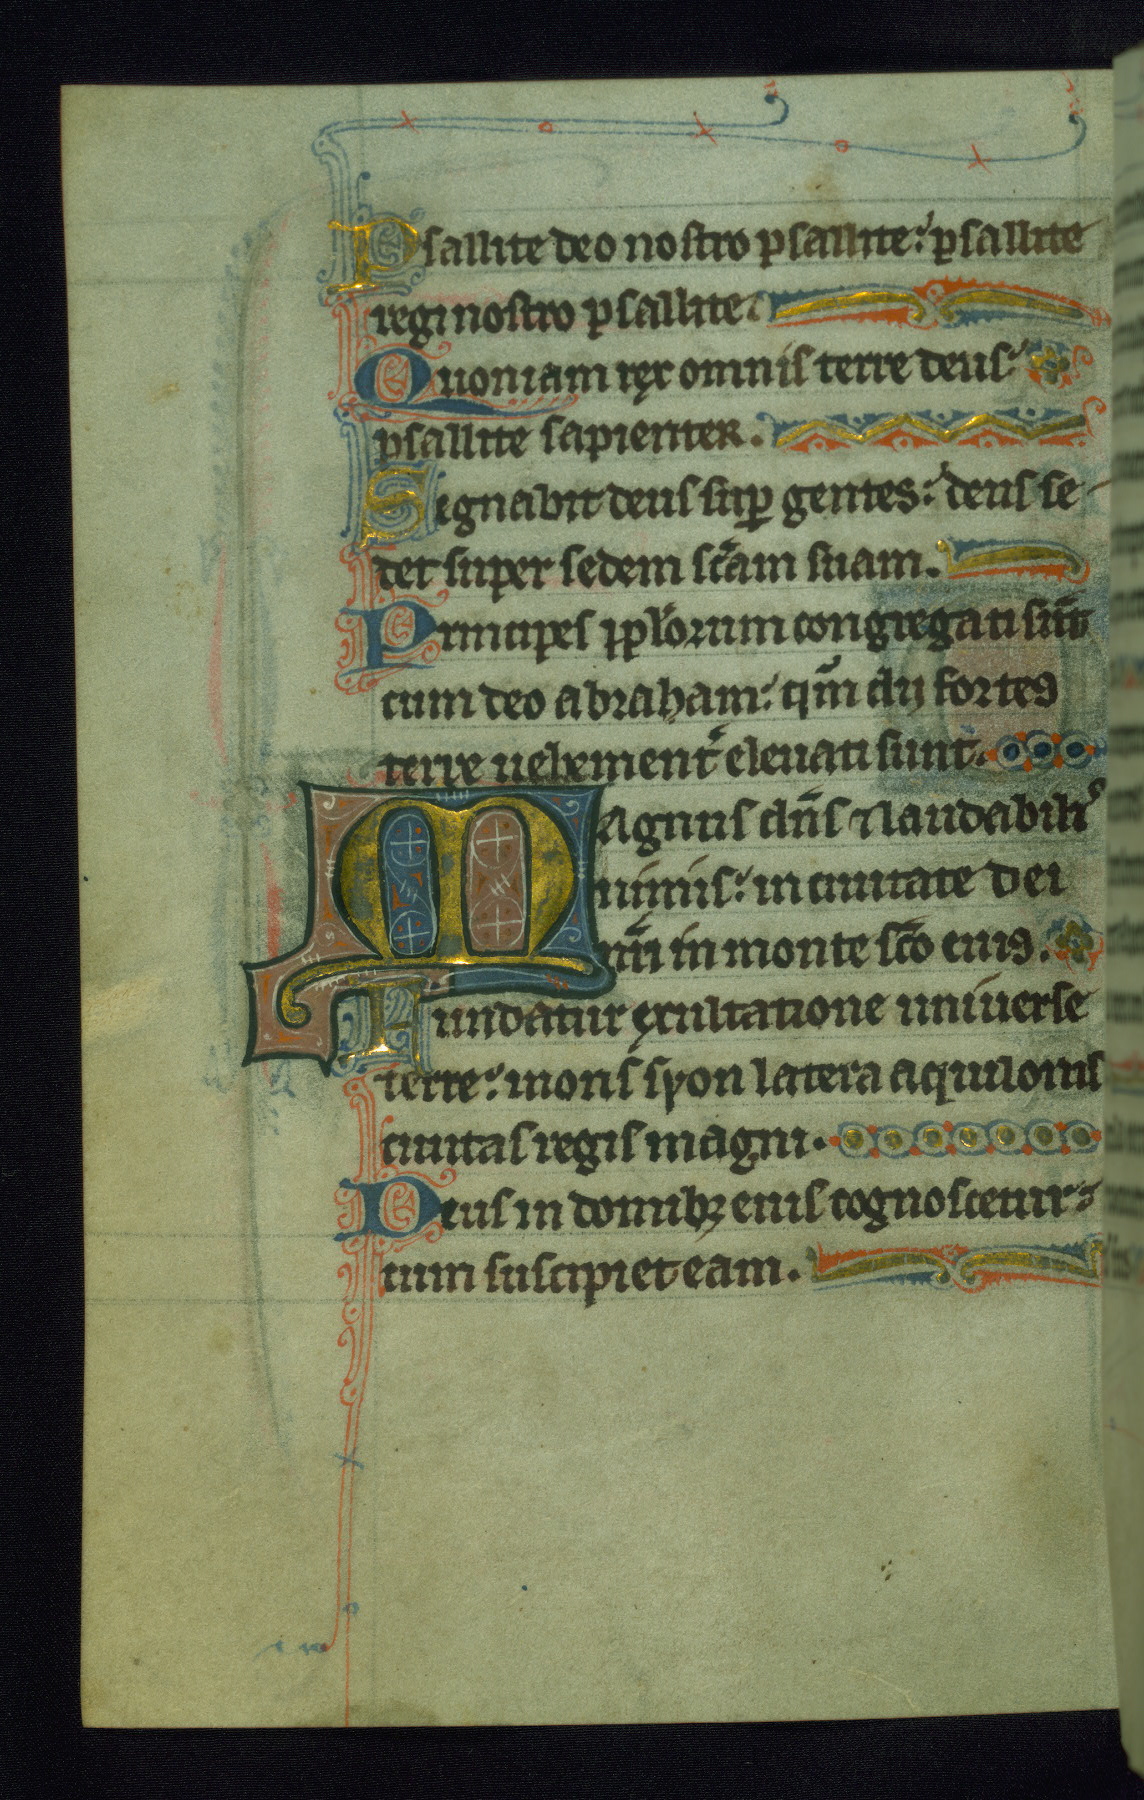 Psallite deo nostro psallite: psallite
regi nostro psallite
Quoniam rex omnis terre deus
psallite sapienter.
Segnabit deus sup gentes: deus se
det super sedem scam suam.
Principes pplorum congregati sunt
cum deo abraham: qm dij fortes
terre uehement eleuati sunt.
Magnus dns & laudabilis
nimis: in ciuitate dei
nri in monte sco eius.
Fundatur exultatione uniuerse
terre: mons syon latera aquilonis
ciuitas regis magni.
Deus in domibz eius cognoscetur:
cum suscipiet eam.